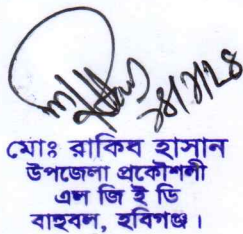 মোঃ রাকিব হাসান
উপজেলা প্রকৌশলী
এল জি ই ডি
বাহুবল, হবিগঞ্জ।